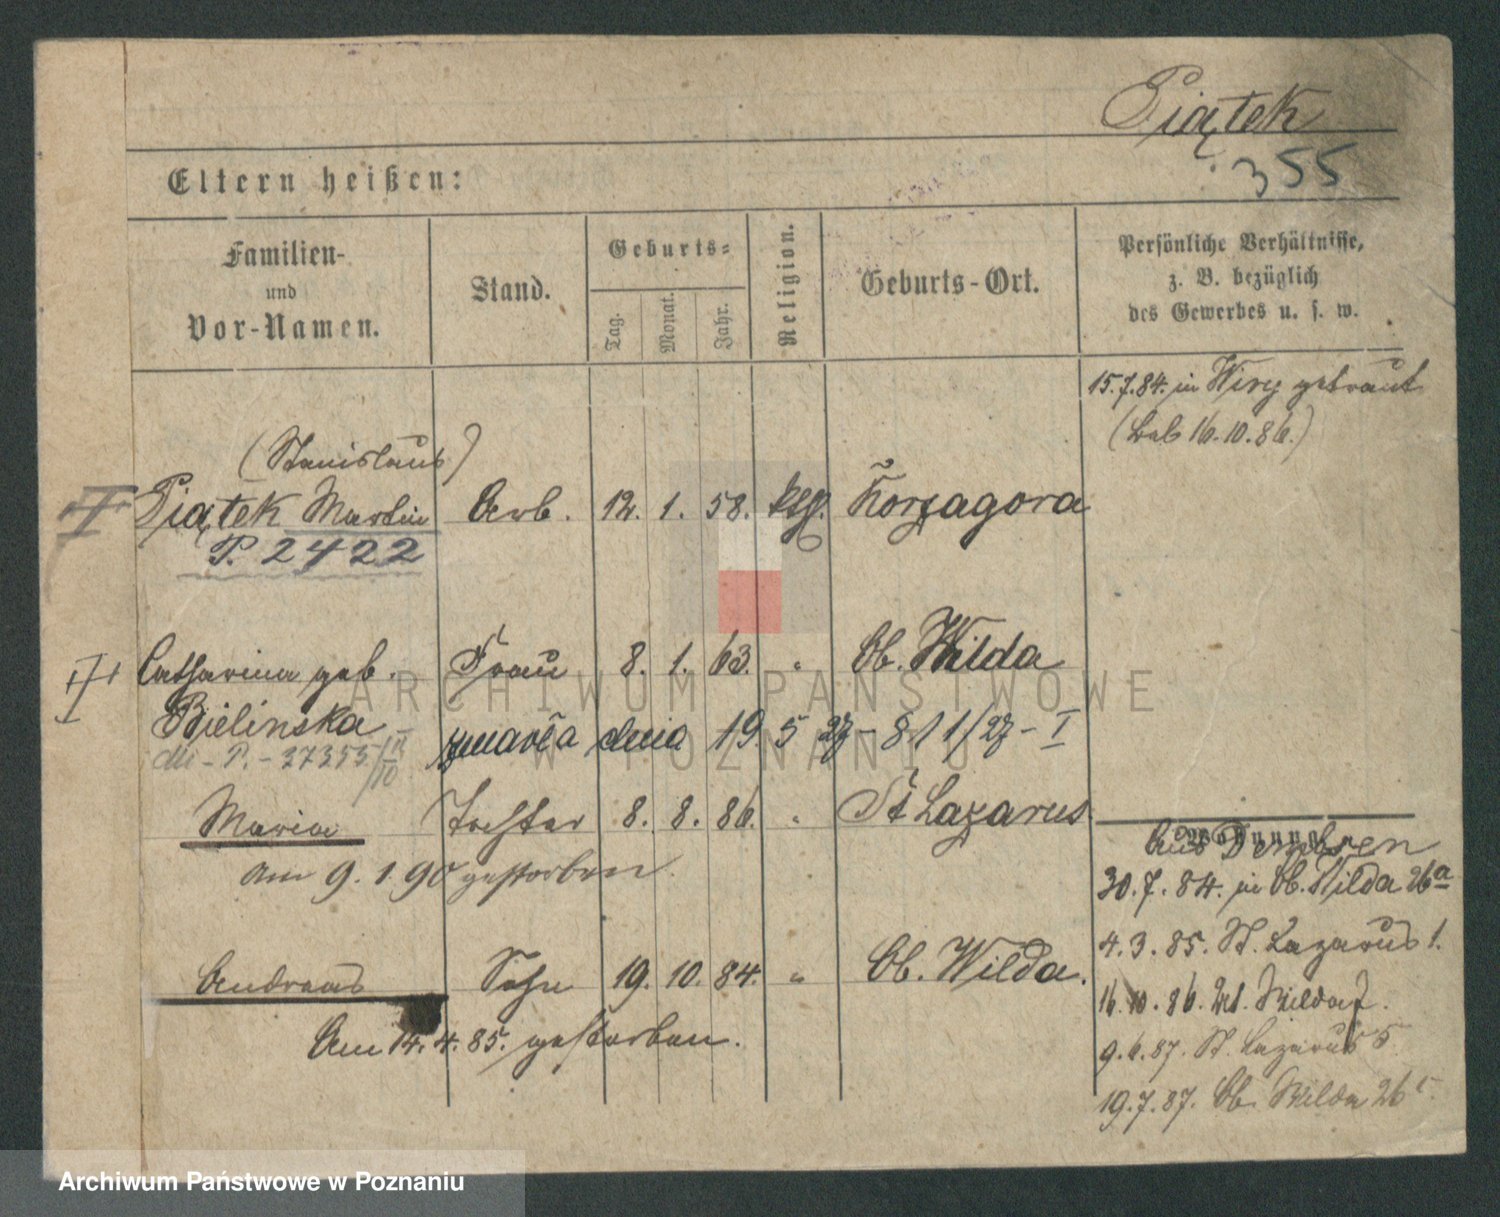 Piątek
355
Eltern heißen:
Familien-
und
Vor-Namen.
Stand.
Geburts-
Tag.
Monat.
Jahr.
Religion.
Geburts-Ort.
Persönliche Verhältnisse,
z. B. bezüglich
des Gewerbes u. s. w.
15.7.84. in Wiry getraut
(16.10.86.)
(Stanislaus)
Piątek Martin Arb. 12. 1. 58. Korzagora
P. 2422
Catharina geb. Frau 8. 1. 63. " Ob. Wilda
Bielinska zmarła dnia 19 5 27 - 811/27 - I
P. - 27355
Maria Tochter 8. 8. 86. " St Lazarus
am 9. 1 90 gestorben.
Wohnung
Aus DemBsen
30.7.84. in Ob. Wilda 26a
4.3.85. St. Lazarus 1.
Andreas Sohn 19. 10. 84. " Ob. Wilda.
16.10.86. Wilda
Am 14.4.85. gestorben.
9.6.87. St. Lazarus 5
19.7.87. Ob. Wilda 26
ARCHIWUM PAŃSTWOWE
W POZNANIU
Archiwum Państwowe w Poznaniu